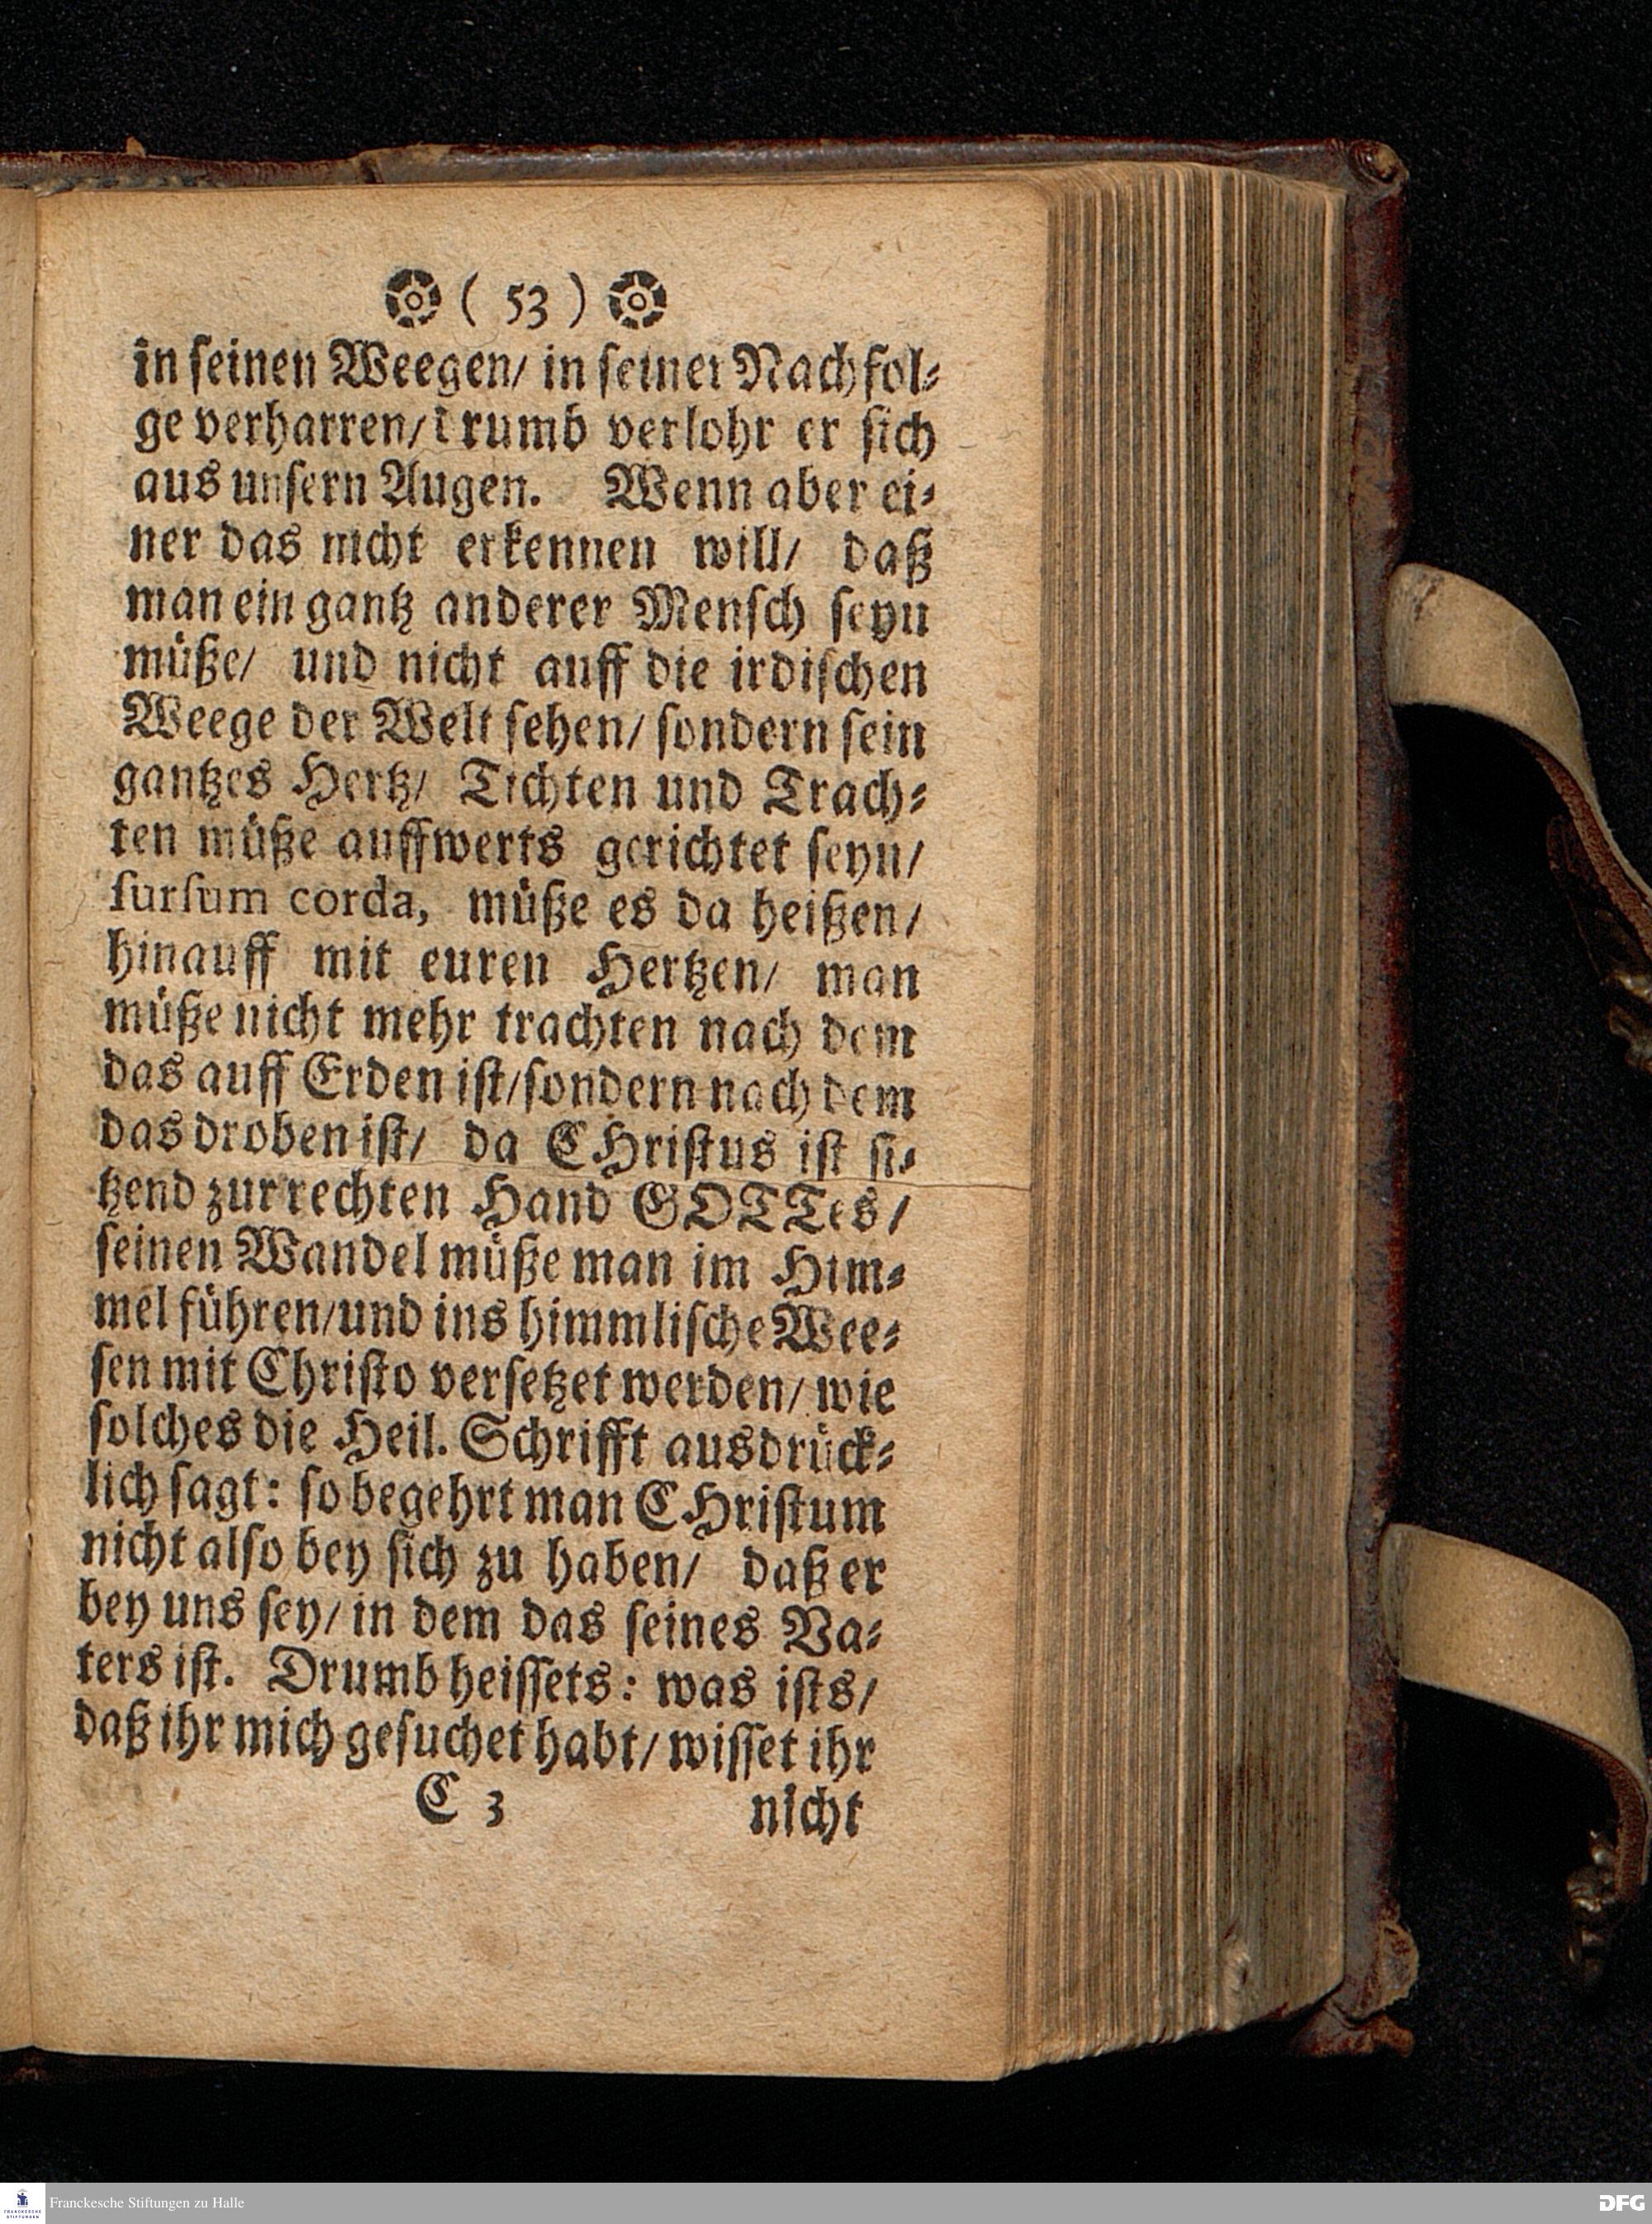 ( 53 )
in seinen Weegen/ in seiner Nachfol-
ge verharren/ drumb verlohr er sich
aus unsern Augen. Wenn aber ei-
ner das nicht erkennen will/ daß
man ein gantz anderer Mensch seyn
müße/ und nicht auff die irdischen
Weege der Welt sehen/ sondern sein
gantzes Hertz/ Tichten und Trach-
ten müße auffwerts gerichtet seyn/
sursum corda, müße es da heißen/
hinauff mit euren Hertzen/ man
müße nicht mehr trachten nach dem
das auff Erden ist/ sondern nach dem
das droben ist/ da CHristus ist si-
tzend zur rechten Hand GOTTes/
seinen Wandel müße man im Him-
mel führen/ und ins himmlische Wee-
sen mit Christo versetzet werden/ wie
solches die Heil. Schrifft ausdrück-
lich sagt: so begehrt man CHristum
nicht also bey sich zu haben/ daß er
bey uns sey/ in dem das seines Va-
ters ist. Drumb heissets: was ists/
daß ihr mich gesuchet habt/ wisset ihr
C 3 nicht
Franckesche Stiftungen zu Halle
FRANCKESCHE STIFTUNGEN
DFG